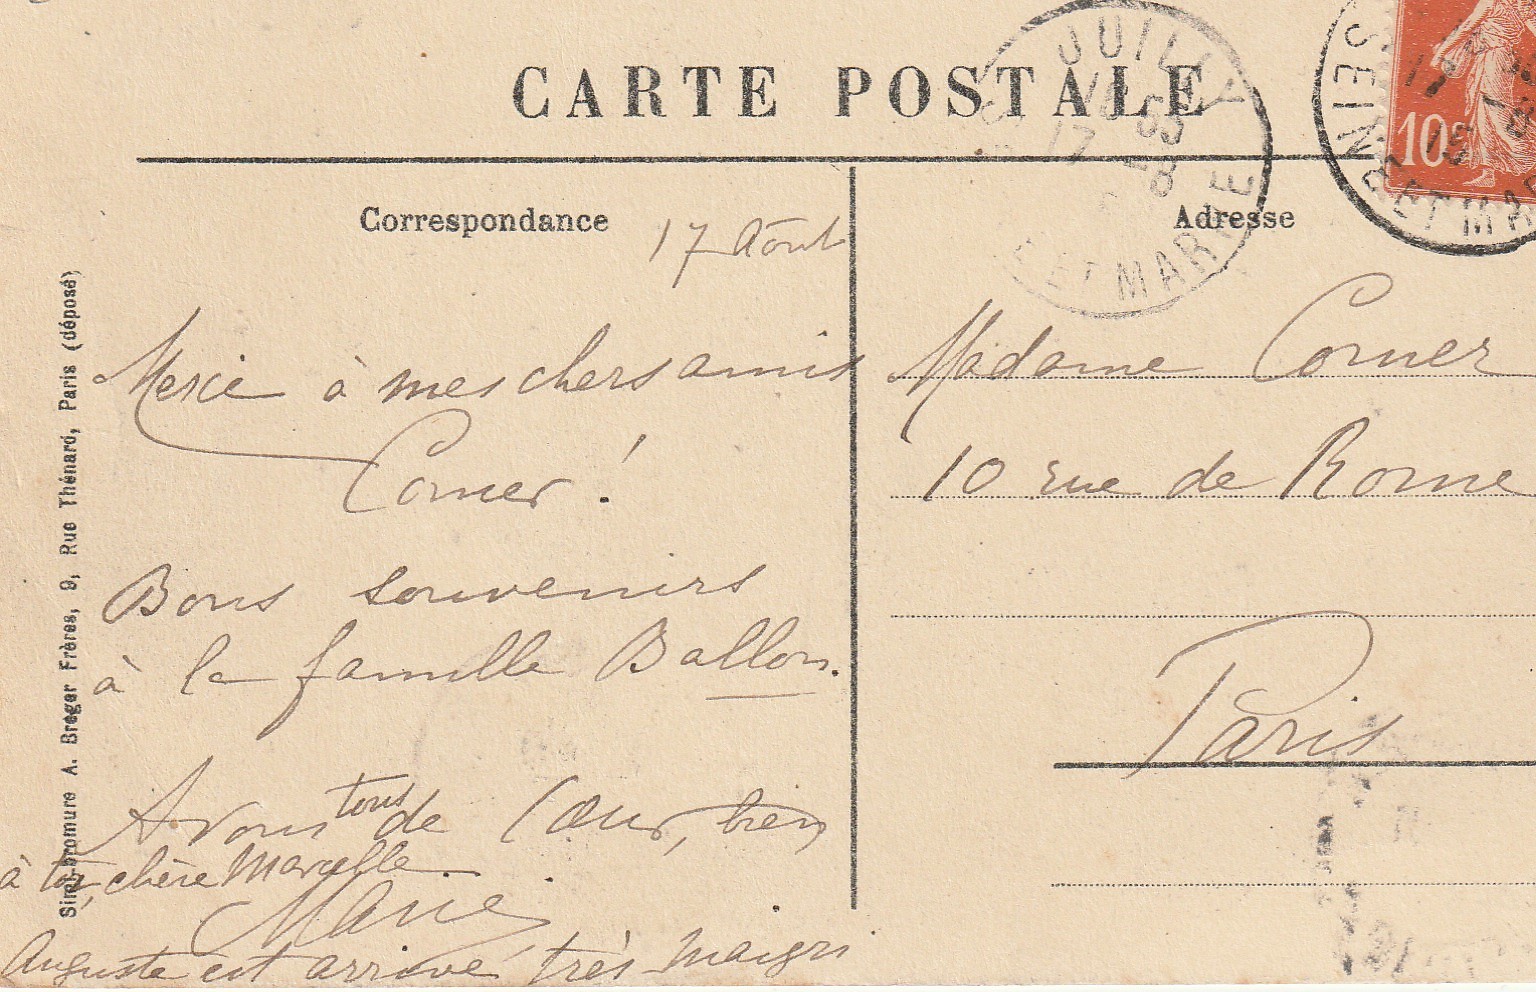 CARTE POSTALE
JUILLY
16 55
17 - 8
ET MARNE
SEINE ET MAR
10c
Correspondance
17 Août
Merci à mes chers amis
Corner !
Bons souvenirs
à la famille Ballon.
A vous tous de Cœur, bien
à toi, chère Marcelle.
Marie
Auguste est arrivé très maigri
Adresse
Madame Corner
10 rue de Rome
Paris
Simili-bromure A. Breger Frères, 9, Rue Thénard, Paris (déposé)